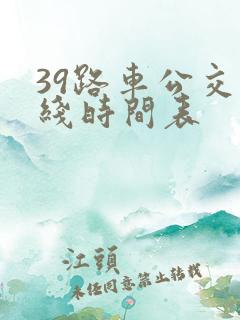 39路車公交
綫時間表
江頭
未经同意禁止转载